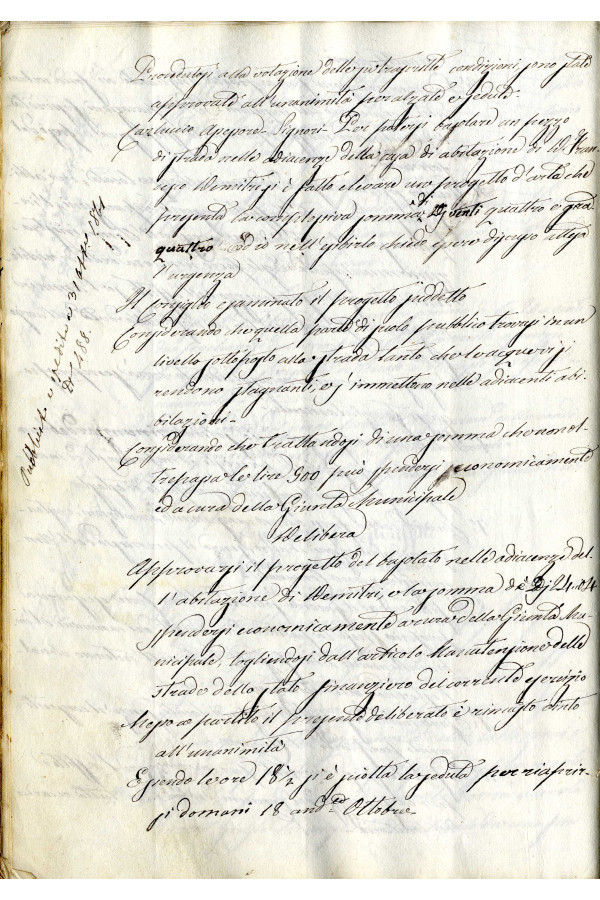 Procedutosi alla votazione delle sotrascritte condizioni, sono state
approvate all'unanimità per alzate e sedute.
Carluccio Assessore - Signori - Per potersi basolare un pezzo
di strada nelle adiacenze della casa di abitazione di D. Fran
cesco Demitri si è fatto elevare uno progetto d'arte che
presenta la complessiva somma di Dj venti quattro e gra
quattro ed io nell'esibirlo chiedo essere discusso attesa
l'urgenza
Il Consiglio esaminato il progetto suddetto
Considerando che quella parte di suolo pubblico trovasi in un
livello sottoposto alla strada tanto che le acque vi si
rendono stagnanti, e s'immettono nelle adiacenti abi-
tazioni -
Considerando che trattandosi di una somma che non ol-
trepassa le lire 500 può spendersi economicamente
ed a cura della Giunta Municipale
Delibera
Approvarsi il progetto del basolato nelle adiacenze del-
l'abitazione di Demitri, e la somma di Dj 24.04
spendersi economicamente a cura della Giunta Mu-
nicipale, togliendosi dall'articolo Manutenzione delle
strade dello stato finanziero del corrente esercizio
Messo a partito il presente deliberato è rimasto vinto
all'unanimità
Essendo le ore 18 1/2 si è sciolta la seduta per riaprir-
si domani 18 and.te Ottobre
Pubblicato e spedito a 31 1861
N° 188